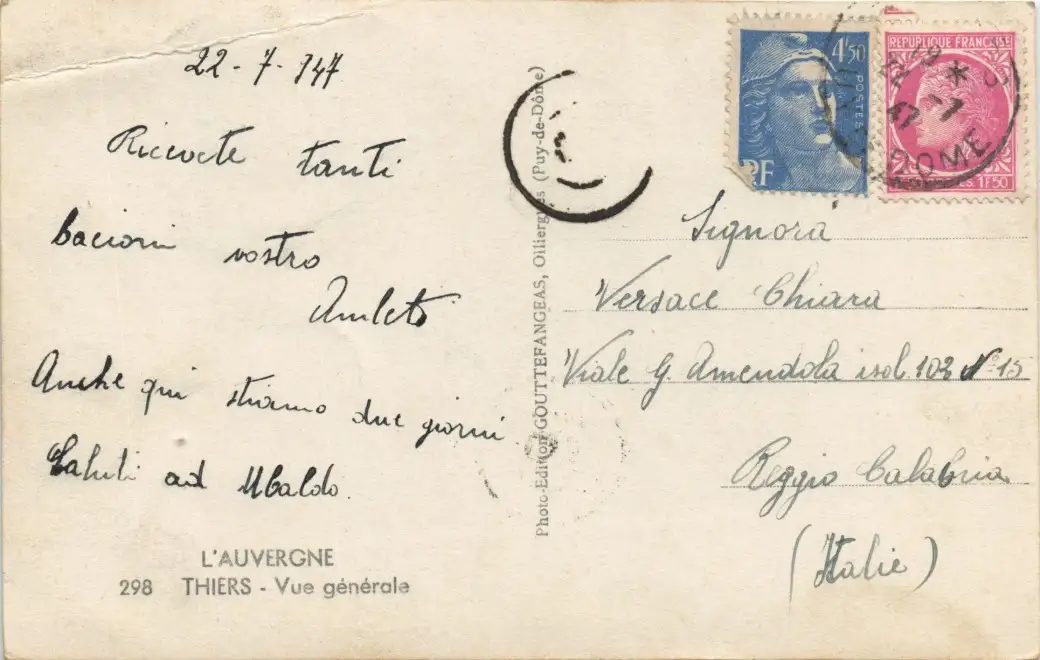 22-7-947
Ricevete tanti
bacioni vostro
Amleto
Anche qui stiamo due giorni
Saluti ad Ubaldo.
L'AUVERGNE
298 THIERS - Vue générale
Photo-Edition GOUTTEFANGEAS, Olliergues (Puy-de-Dôme)
4F50
POSTES
RF
REPUBLIQUE FRANÇAISE
POSTES 1F50
DOME
Signora
Versace Chiara
Viale G Amendola isol 102 N° 15
Reggio Calabria
(Italie)